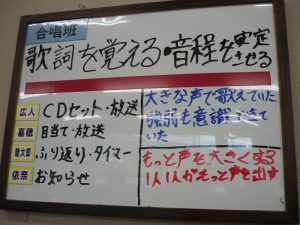 合唱班
歌詞を覚える・音程を安定させる
広人 CDセット・放送
嘉穂 目当て・放送
龍太郎 ふり返り・タイマー
依奈 お知らせ
大きな声で歌えていた
強弱も意識できて
いた
もっと声を大きくする
1人1人がもっと声を出す